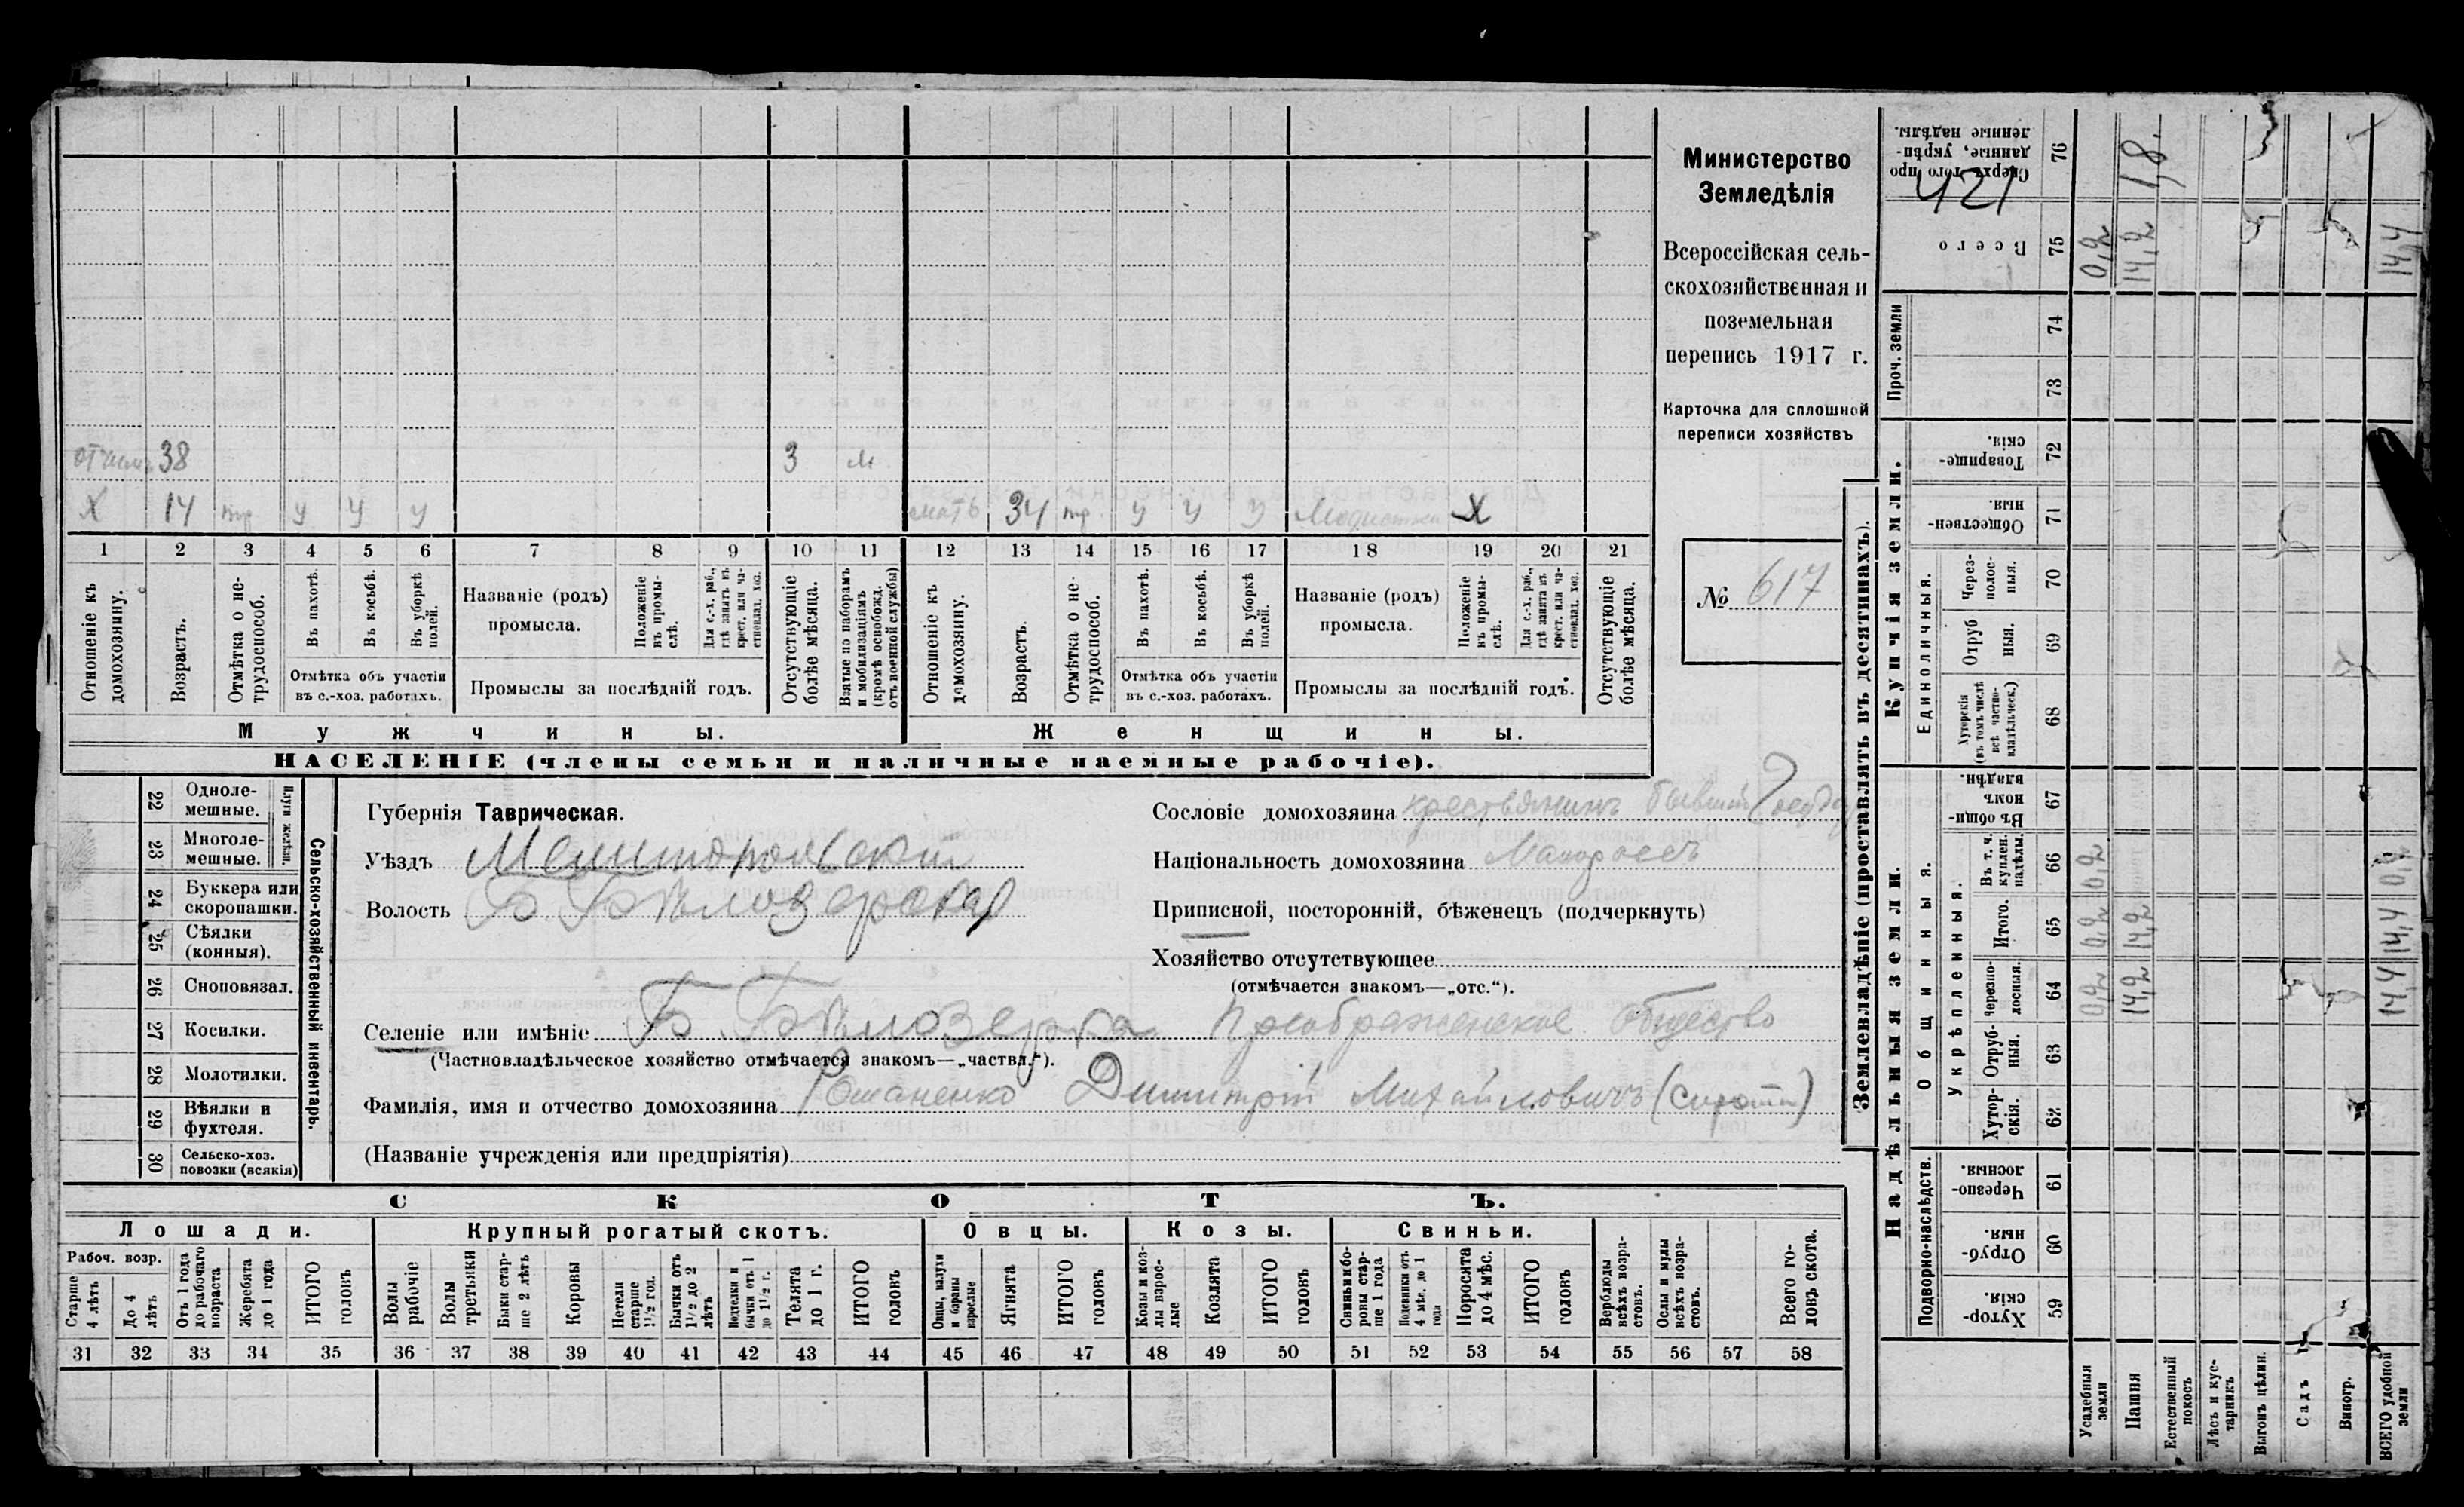 Министерство
Земледѣлія
Всероссійская сель-
скохозяйственная и
поземельная
перепись 1917 г.
Карточка для сплошной
переписи хозяйствъ
№ 617
421
отчимъ 38 3 м
X 14 у у у мать 34 у у у Модистка X
1 2 3 4 5 6 7 8 9 10 11 12 13 14 15 16 17 18 19 20 21
Отношеніе къ домохозяину.
Возрастъ.
Отмѣтка о не-трудоспособ.
Въ пахотѣ.
Въ косьбѣ.
Въ уборкѣ полей.
Отмѣтка объ участіи
въ с.-хоз. работахъ.
Названіе (родъ)
промысла.
Положеніе въ промы-слѣ.
Для с.-х. раб., гдѣ занятъ въ крест. или ча-стновлад. хоз.
Промыслы за послѣдній годъ.
Отсутствующіе болѣе мѣсяца.
Взятые по наборамъ и мобилизаціямъ (кромѣ освобожд. отъ военной службы)
Отношеніе къ домохозяину.
Возрастъ.
Отмѣтка о не-трудоспособ.
Въ пахотѣ.
Въ косьбѣ.
Въ уборкѣ полей.
Отмѣтка объ участіи
въ с.-хоз. работахъ.
Названіе (родъ)
промысла.
Положеніе въ промы-слѣ.
Для с.-х. раб., гдѣ занята въ крест. или ча-стновлад. хоз.
Промыслы за послѣдній годъ.
Отсутствующіе болѣе мѣсяца.
Мужчины. Женщины.
НАСЕЛЕНІЕ (члены семьи и наличные наемные рабочіе).
22 Одноле-мешные.
23 Многоле-мешные.
Плуги желѣзн.
24 Буккера или скоропашки.
25 Сѣялки (конныя).
26 Сноповязал.
27 Косилки.
28 Молотилки.
29 Вѣялки и фухтеля.
30 Сельско-хоз. повозки (всякія)
Сельско-хозяйственный инвентарь.
Губернія Таврическая.
Уѣздъ Мелитопольскій
Волость Б Бѣлозерская
Сословіе домохозяина крестьянинъ бывшій
Національность домохозяина Малороссъ
Приписной, посторонній, бѣженецъ (подчеркнуть)
Хозяйство отсутствующее
(отмѣчается знакомъ—„отс.“).
Селеніе или имѣніе Б. Бѣлозерка Преображенское Общество
(Частновладѣльческое хозяйство отмѣчается знакомъ—„частвл.“).
Фамилія, имя и отчество домохозяина Романенко Димитрій Михайловичъ (сирота)
(Названіе учрежденія или предпріятія)
СКОТЪ.
Лошади. Крупный рогатый скотъ. Овцы. Козы. Свиньи.
Рабоч. возр.
Старше 4 лѣтъ
До 4 лѣтъ
Отъ 1 года до рабочаго возраста
Жеребята до 1 года
ИТОГО головъ
Волы рабочіе
Волы третьяки
Быки стар-ше 2 лѣтъ
Коровы
Нетели старше 1½ год.
Бычки отъ 1½ до 2 лѣтъ
Подтелки и бычки отъ 1 до 1½ г.
Телята до 1 г.
ИТОГО головъ
Овцы, валухи и бараны взрослые
Ягнята
ИТОГО головъ
Козы и коз-лы взрос-лые
Козлята
ИТОГО головъ
Свиньи и бо-ровы стар-ше 1 года
Подсвинки отъ 4 мѣс. до 1 года
Поросята до 4 мѣс.
ИТОГО головъ
Верблюды всѣхъ возра-стовъ.
Ослы и мулы всѣхъ возра-стовъ.
Всего го-ловъ скота.
31 32 33 34 35 36 37 38 39 40 41 42 43 44 45 46 47 48 49 50 51 52 53 54 55 56 57 58
Землевладѣніе (проставлять въ десятинахъ).
Надѣльныя земли.
Подворно-наслѣдств.
Хутор-скія. 59
Отруб-ныя. 60
Черезпо-лосныя. 61
Общинныя.
Укрѣпленныя.
Хутор-скія. 62
Отруб-ныя. 63
Черезпо-лосныя. 64 0,2 14,2 14,4
Итого. 65 0,2 14,2 14,4
Въ т. ч. куплен. надѣлы. 66 0,2 0,2
Въ общин-номъ владѣн. 67
Купчія земли.
Единоличныя.
Хуторскія (въ томъ числѣ всѣ частно-владѣльческ.) 68
Отруб ныя. 69
Через-полос-ныя. 70
Обществен-ныя. 71
Товарище-скія. 72
Проч. земли
73
74
Всего 75 0,2 14,2 14,4
Сверхъ того про данные, укрѣп-ленные надѣлы. 76 1,8.
Усадебныя земли
Пашня
Естественный покосъ
Лѣсъ и кус-тарникъ
Выгонъ цѣлин.
Садъ
Виногр.
ВСЕГО удобной земли